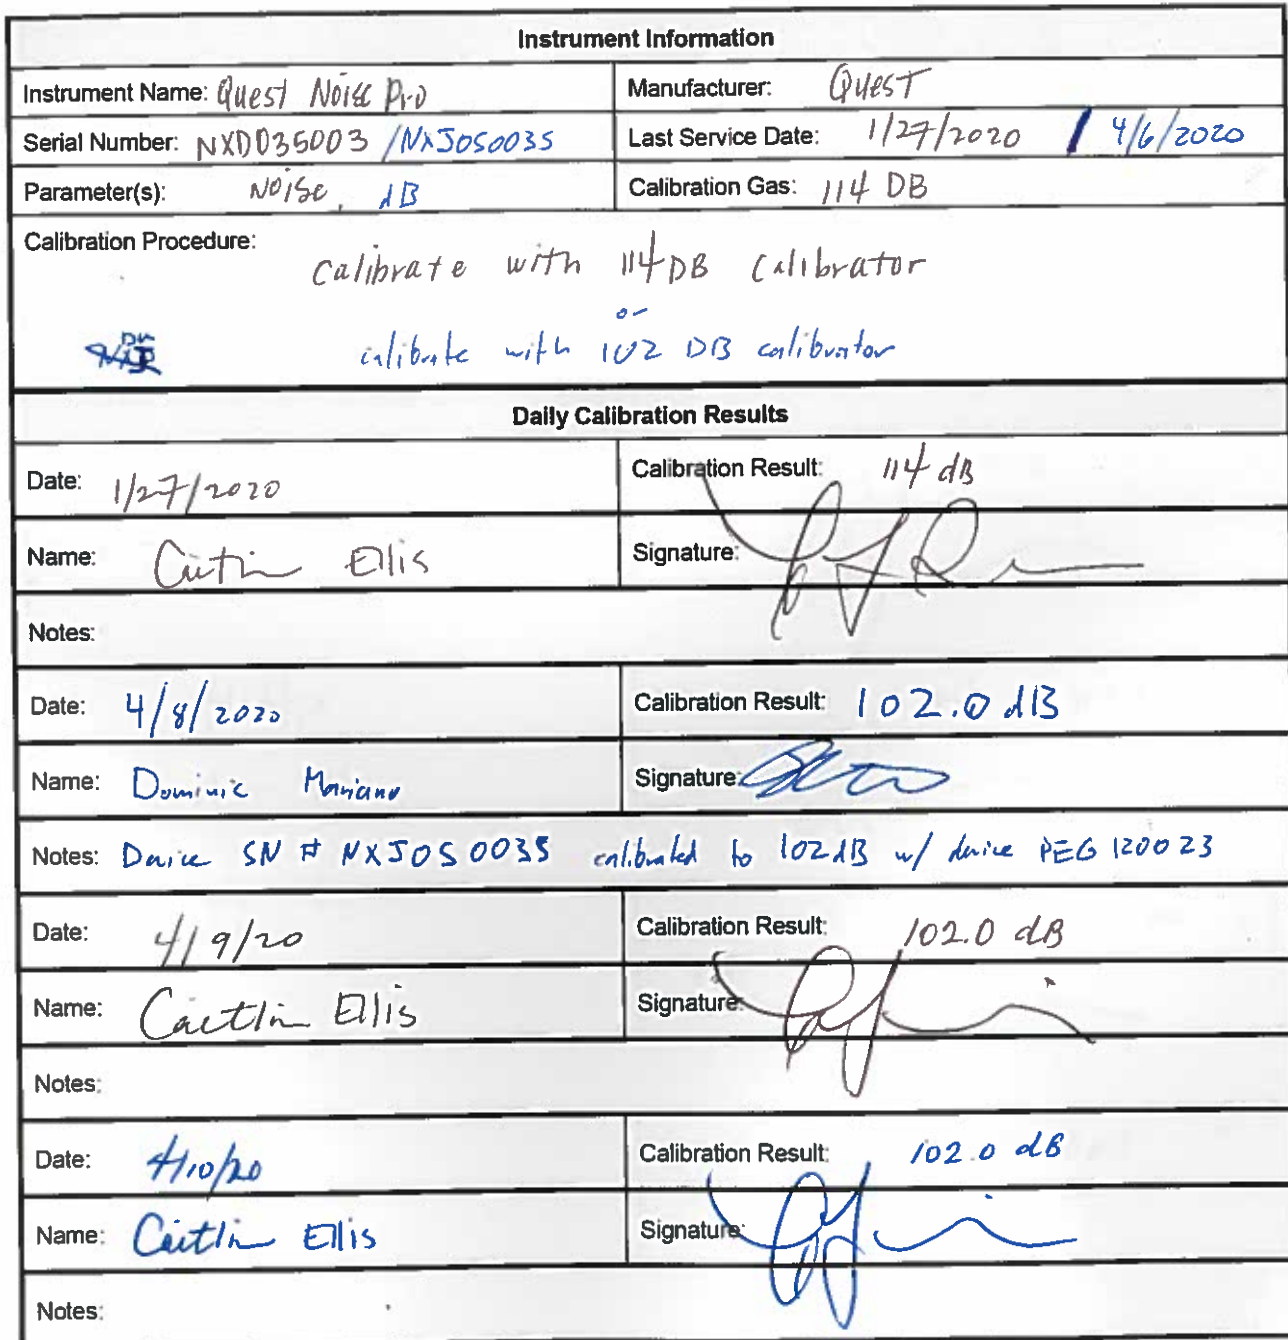 Instrument Information
Instrument Name: Quest Noise Pro
Manufacturer: Quest
Serial Number: NXDD35003 /NXJ050035
Last Service Date: 1/27/2020 / 4/6/2020
Parameter(s): Noise, dB
Calibration Gas: 114 DB
Calibration Procedure:
Calibrate with 114 DB Calibrator
or
calibrate with 102 DB calibrator
Daily Calibration Results
Date: 1/27/2020
Calibration Result: 114 dB
Name: Caitlin Ellis
Signature:
Notes:
Date: 4/8/2020
Calibration Result: 102.0 dB
Name: Dominic Mariano
Signature:
Notes: Device SN # NXJ050035 calibrated to 102dB w/ device PEG 120023
Date: 4/9/20
Calibration Result: 102.0 dB
Name: Caitlin Ellis
Signature:
Notes:
Date: 4/10/20
Calibration Result: 102.0 dB
Name: Caitlin Ellis
Signature:
Notes: